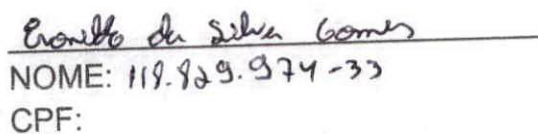 Eronildo da Silva Gomes
NOME: 118.829.974-33
CPF: